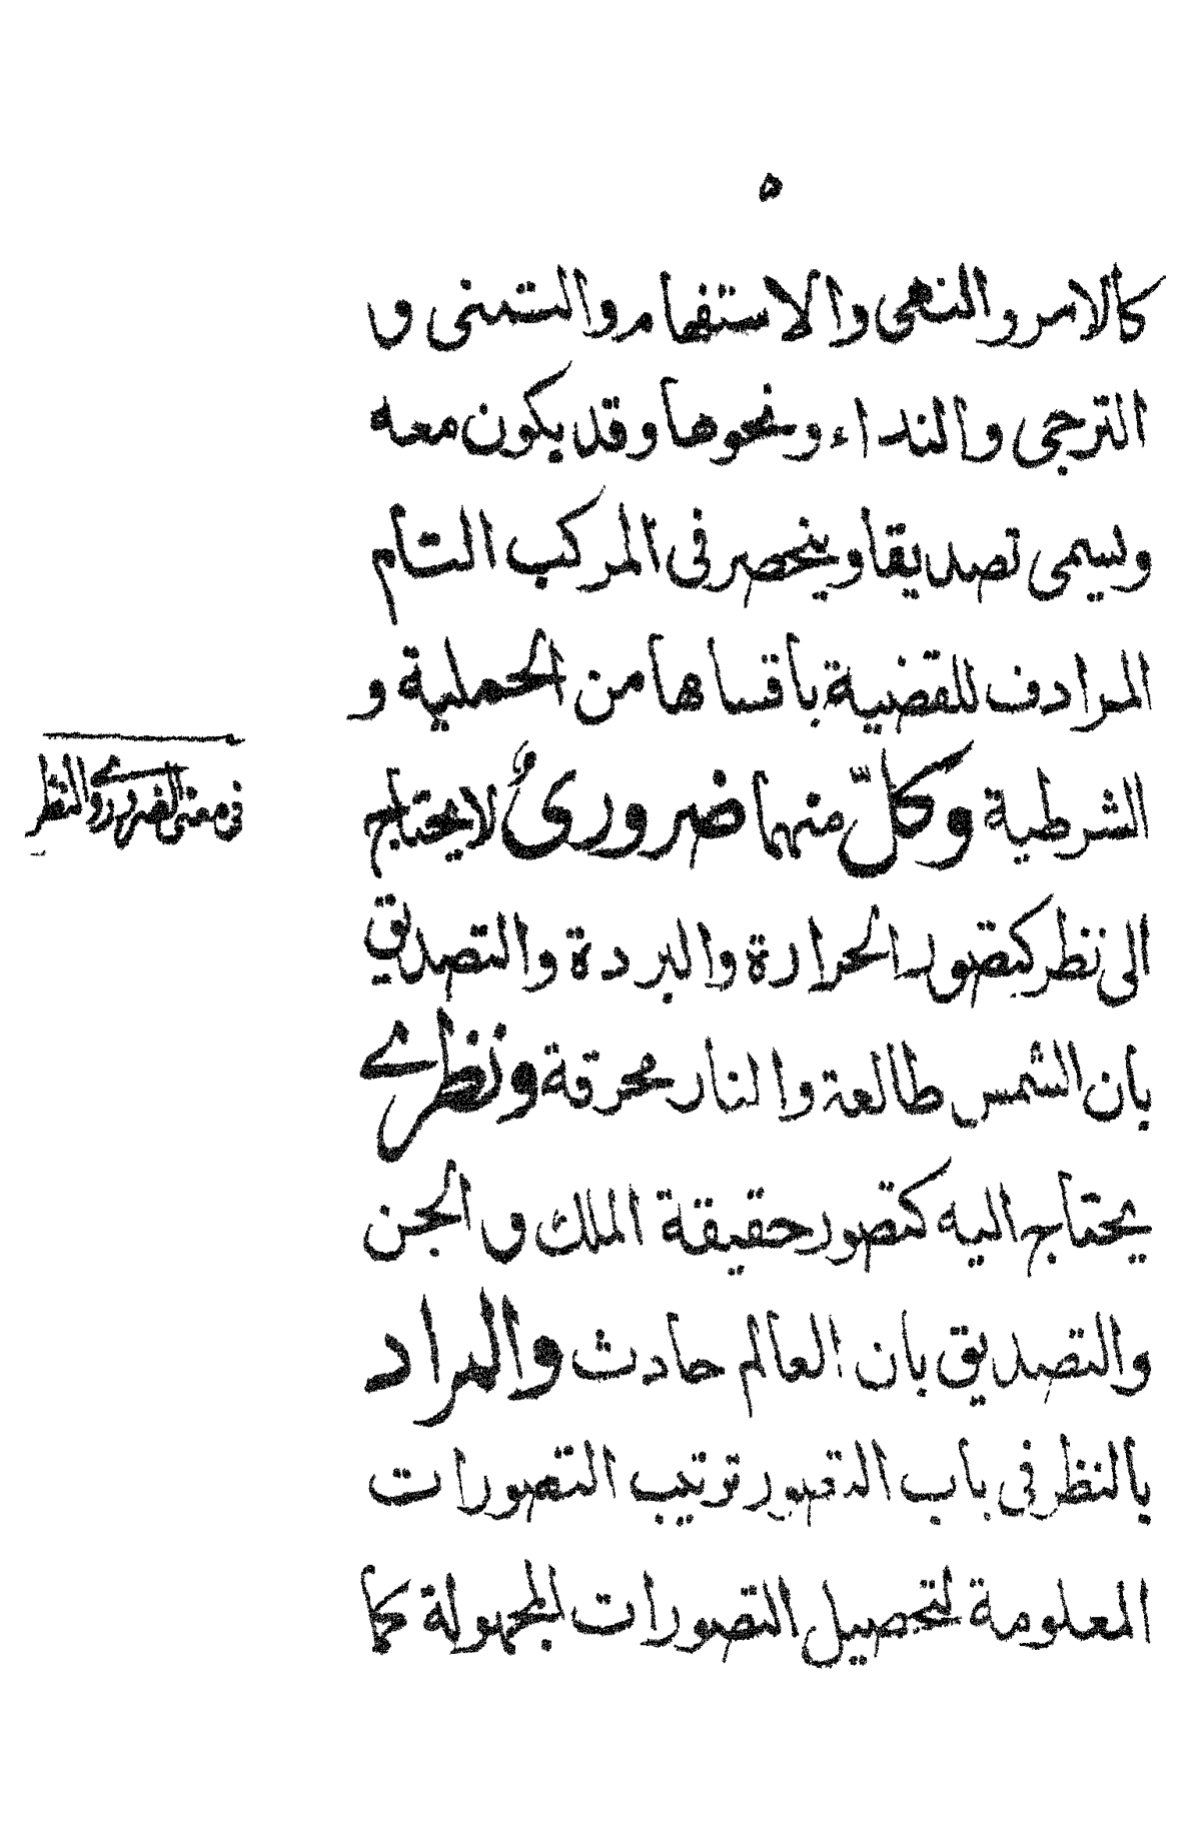 ٥
كالامر والنهى والاستفهام والتمنى و
الترجى والنداء ونحوها وقد يكون معه
ويسمى تصديقا وينحصر فى المركب التام
المرادف للقضية باقساها من الحملية و
الشرطية وكلّ منهما ضرورىٌ لا يحتاج
الى نظر كتصور الحرارة والبردة والتصديق
بان الشمس طالعة والنار محرقة ونظرے
يحتاج اليه كتصور حقيقة الملك و الجن
والتصديق بان العالم حادث والمراد
بالنظر فى باب التصور ترتيب التصورات
المعلومة لتحصيل التصورات المجهولة كما
فى معنى الضرورے والنظر